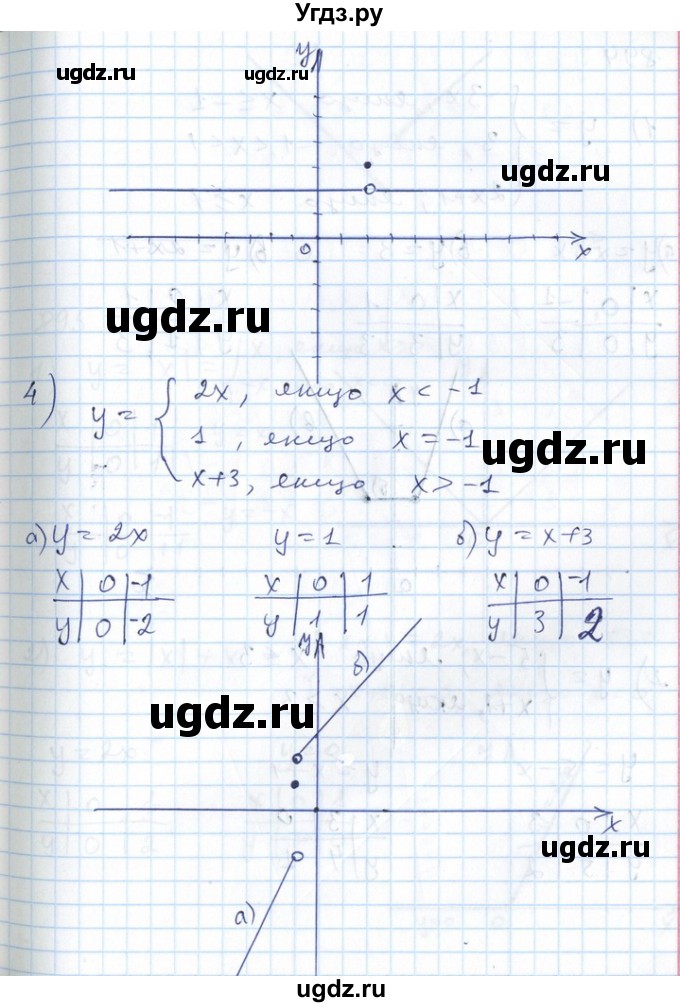 Угдз.ру
ugdz.ru ugdz.ru
ugdz.ru
y
0 x
ugdz.ru
4) y = { 2x, якщо x < -1
1, якщо x = -1
ugdz.ru
x+3, якщо x > -1
а) y = 2x y = 1 б) y = x+3
x | 0 | -1 x | 0 | 1 x | 0 | -1
y | 0 | -2 y | 1 | 1 y | 3 | 2
y
б)
ugdz.ru ugdz.ru
x
ugdz.ru
а)
ugdz.ru